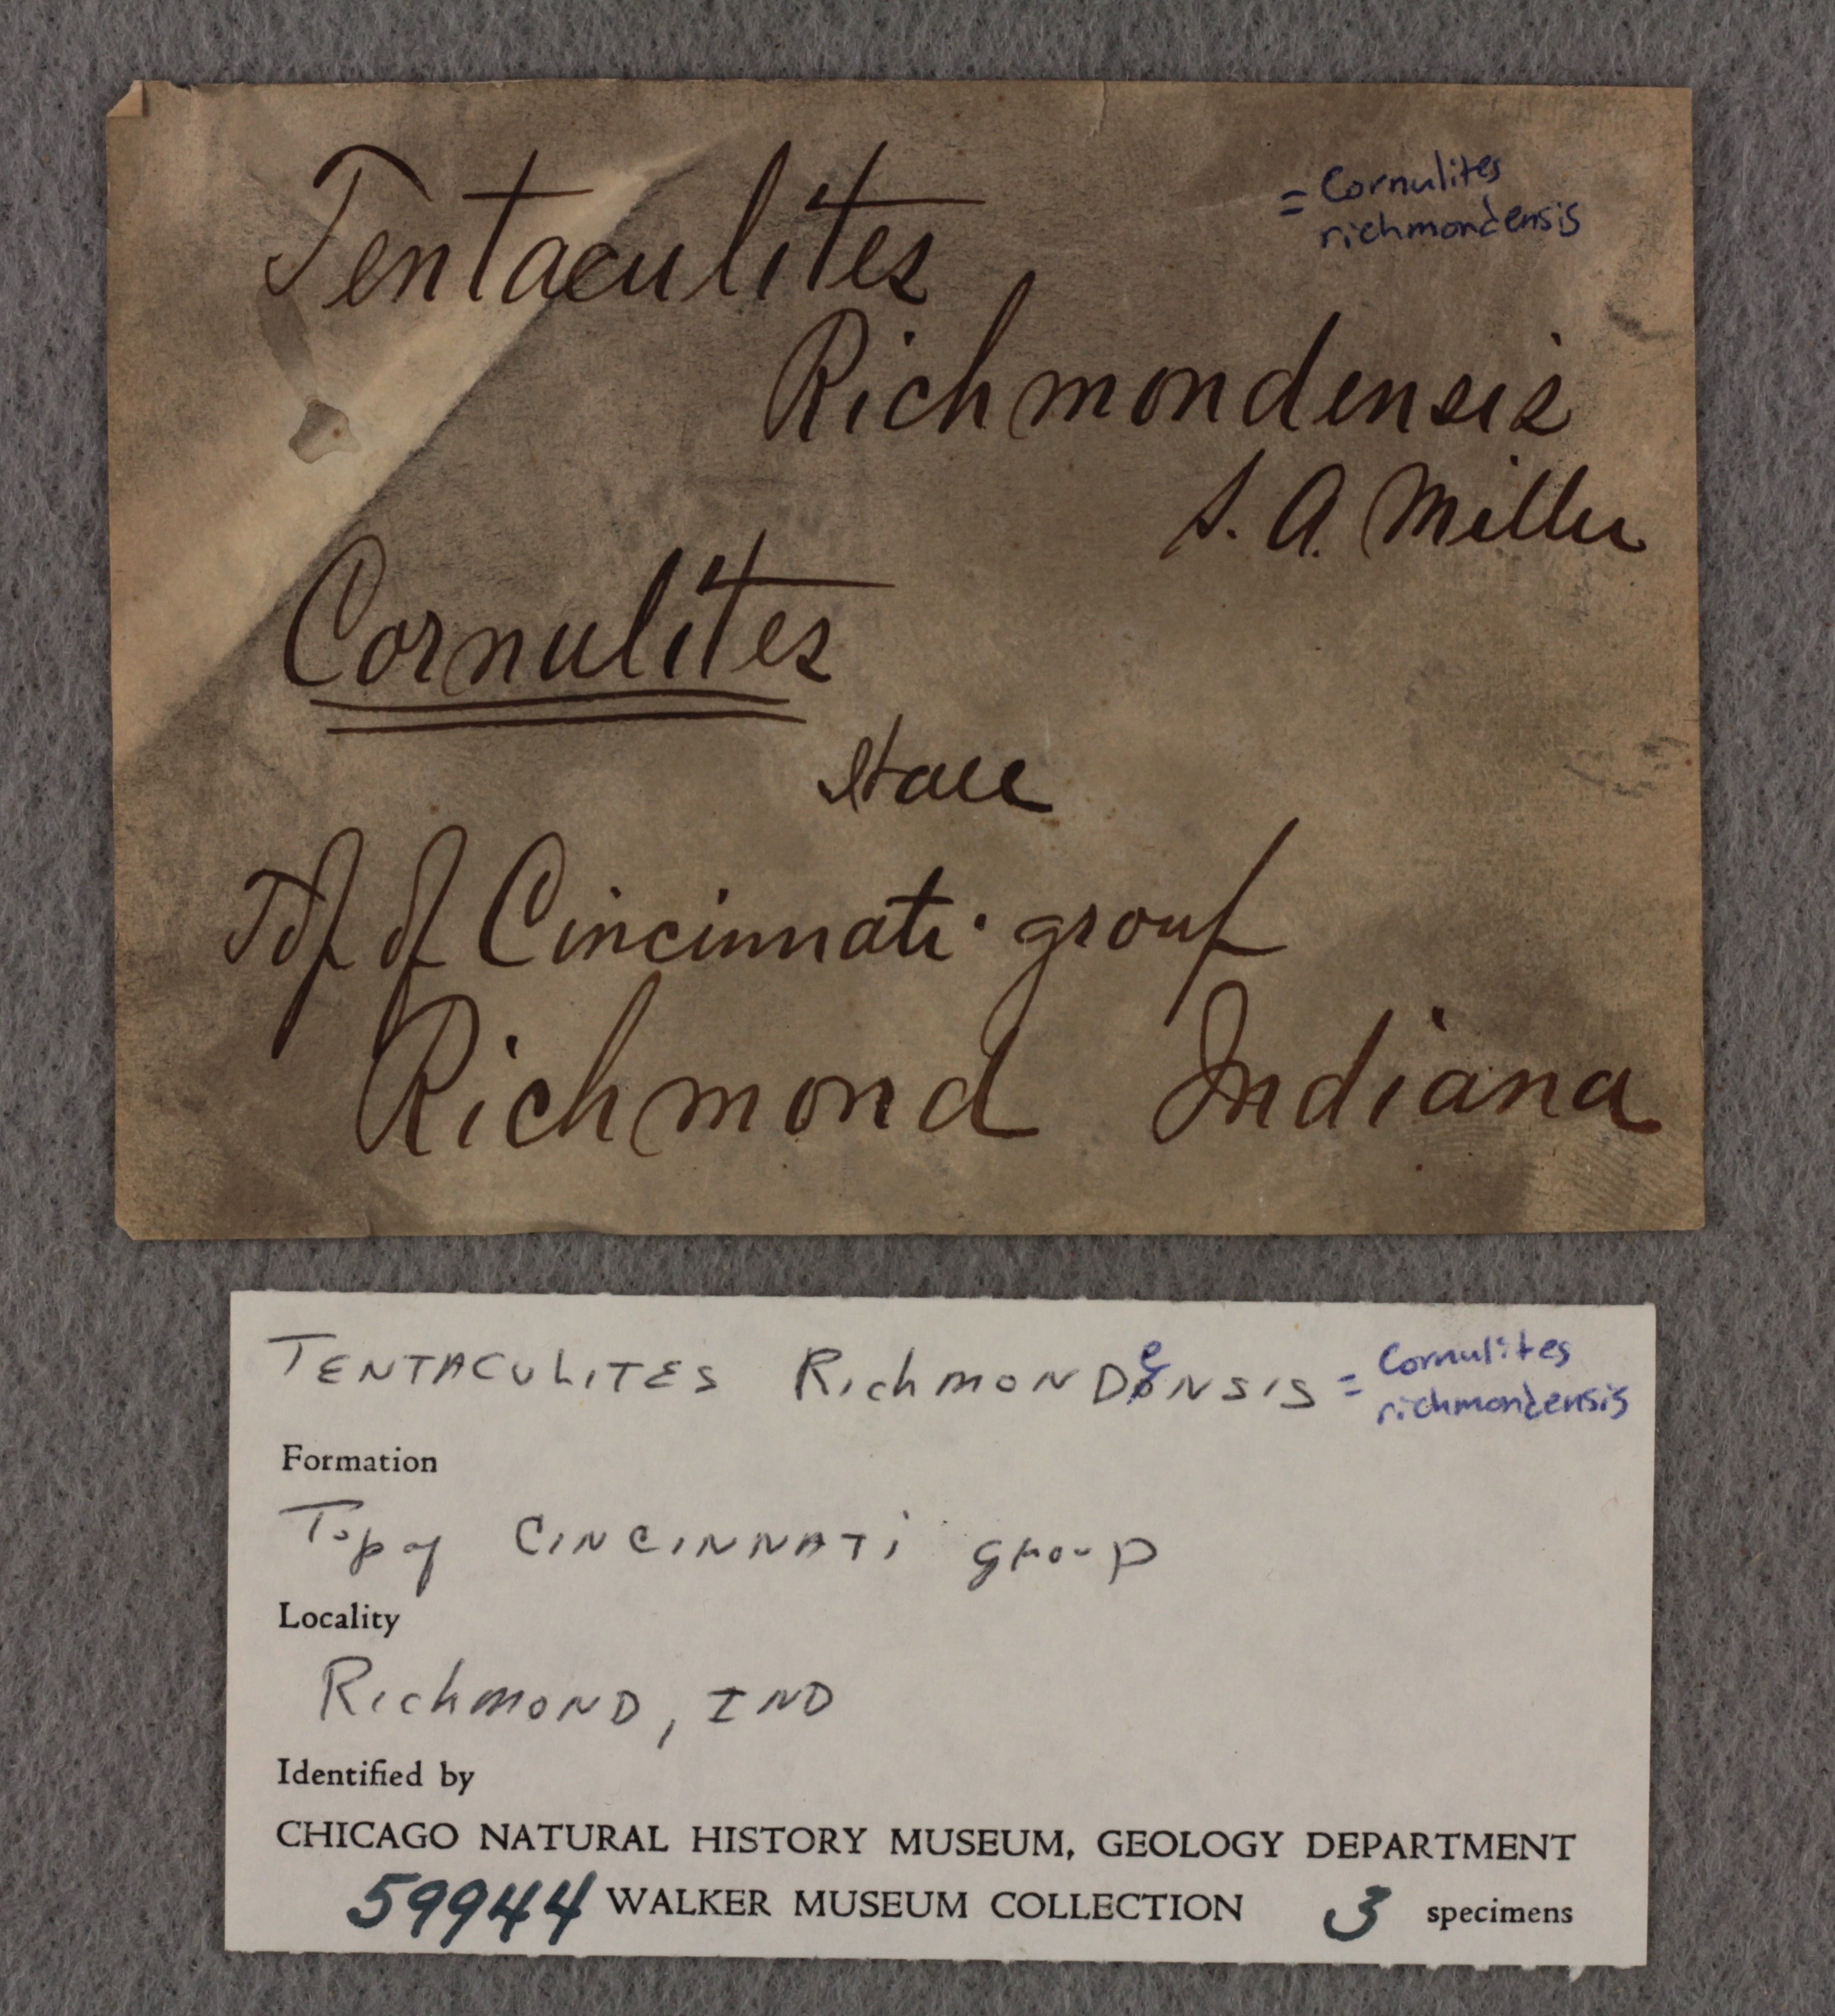 Tentaculites
= Cornulites
richmondensis
Richmondensis
S. A. Miller
Cornulites
Hall
Top of Cincinnati group
Richmond Indiana
TENTACULITES RichmonDensis = Cornulites
richmondensis
Formation
Top of CINCINNATi group
Locality
RichmonD, IND
Identified by
CHICAGO NATURAL HISTORY MUSEUM, GEOLOGY DEPARTMENT
59944 WALKER MUSEUM COLLECTION 3 specimens